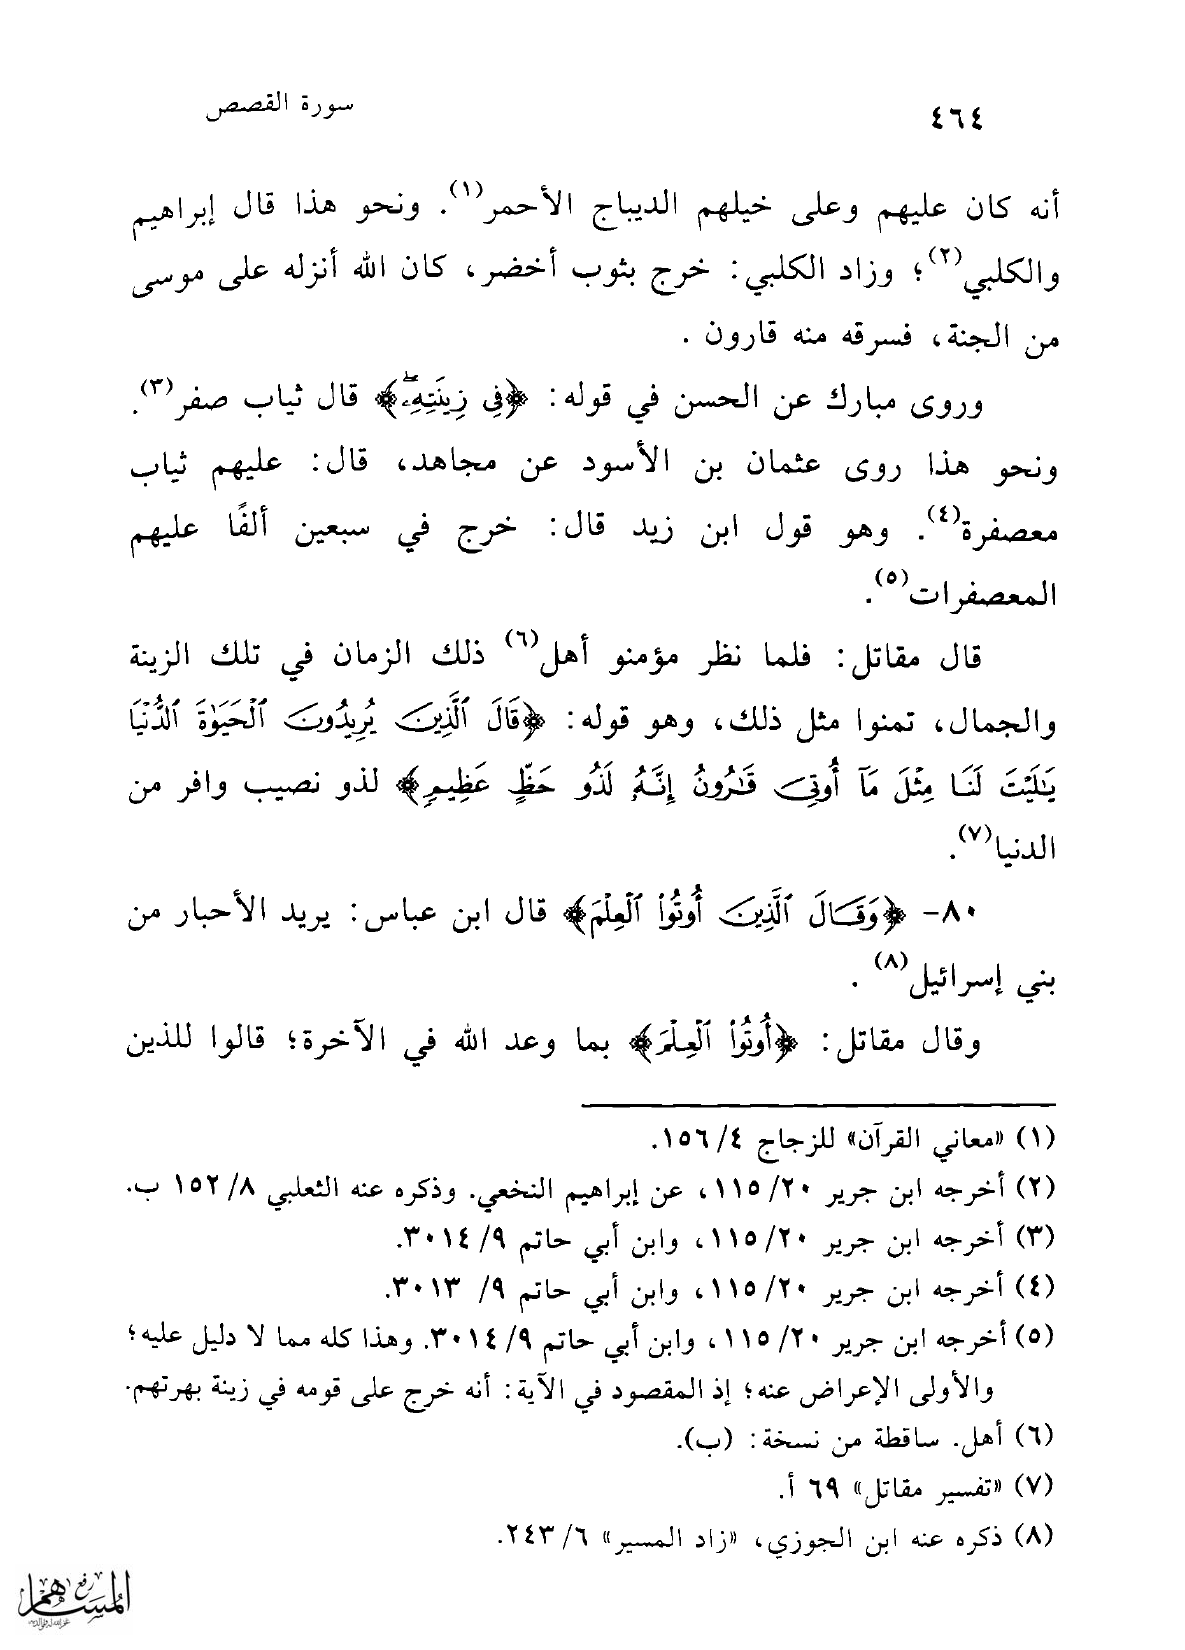 ٤٦٤
سورة القصص
أنه كان عليهم وعلى خيلهم الديباج الأحمر(١). ونحو هذا قال إبراهيم
والكلبي(٢)؛ وزاد الكلبي: خرج بثوب أخضر، كان الله أنزله على موسى
من الجنة، فسرقه منه قارون .
وروى مبارك عن الحسن في قوله: ﴿فِى زِينَتِهِۦۖ﴾ قال ثياب صفر(٣).
ونحو هذا روى عثمان بن الأسود عن مجاهد، قال: عليهم ثياب
معصفرة(٤). وهو قول ابن زيد قال: خرج في سبعين ألفًا عليهم
المعصفرات(٥).
قال مقاتل: فلما نظر مؤمنو أهل(٦) ذلك الزمان في تلك الزينة
والجمال، تمنوا مثل ذلك، وهو قوله: ﴿قَالَ ٱلَّذِينَ يُرِيدُونَ ٱلْحَيَوٰةَ ٱلدُّنْيَا
يَٰلَيْتَ لَنَا مِثْلَ مَآ أُوتِىَ قَٰرُونُ إِنَّهُۥ لَذُو حَظٍّ عَظِيمٍ﴾ لذو نصيب وافر من
الدنيا(٧).
٨٠- ﴿وَقَالَ ٱلَّذِينَ أُوتُوا۟ ٱلْعِلْمَ﴾ قال ابن عباس: يريد الأحبار من
بني إسرائيل(٨) .
وقال مقاتل: ﴿أُوتُوا۟ ٱلْعِلْمَ﴾ بما وعد الله في الآخرة؛ قالوا للذين
(١) «معاني القرآن» للزجاج ٤/ ١٥٦.
(٢) أخرجه ابن جرير ٢٠/ ١١٥، عن إبراهيم النخعي. وذكره عنه الثعلبي ٨/ ١٥٢ ب.
(٣) أخرجه ابن جرير ٢٠/ ١١٥، وابن أبي حاتم ٩/ ٣٠١٤.
(٤) أخرجه ابن جرير ٢٠/ ١١٥، وابن أبي حاتم ٩/ ٣٠١٣.
(٥) أخرجه ابن جرير ٢٠/ ١١٥، وابن أبي حاتم ٩/ ٣٠١٤. وهذا كله مما لا دليل عليه؛
والأولى الإعراض عنه؛ إذ المقصود في الآية: أنه خرج على قومه في زينة بهرتهم.
(٦) أهل. ساقطة من نسخة: (ب).
(٧) «تفسير مقاتل» ٦٩ أ.
(٨) ذكره عنه ابن الجوزي، «زاد المسير» ٦/ ٢٤٣.